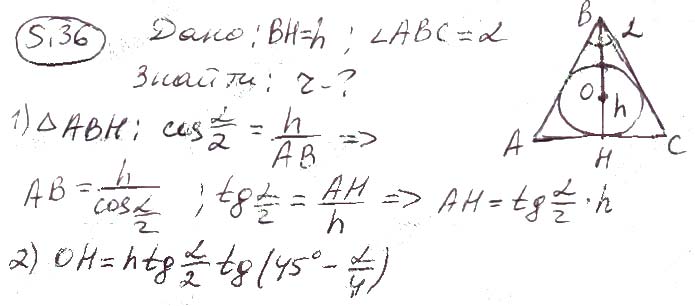 5.36 Дано: BH=h; ∠ABC=α
Знайти: r-?
1) △ABH: cos α/2 = h/AB =>
AB = h/cos α/2 ; tg α/2 = AH/h => AH = tg α/2 · h
2) OH = h tg α/2 tg (45° - α/4)
B
α
O
h
A
H
C